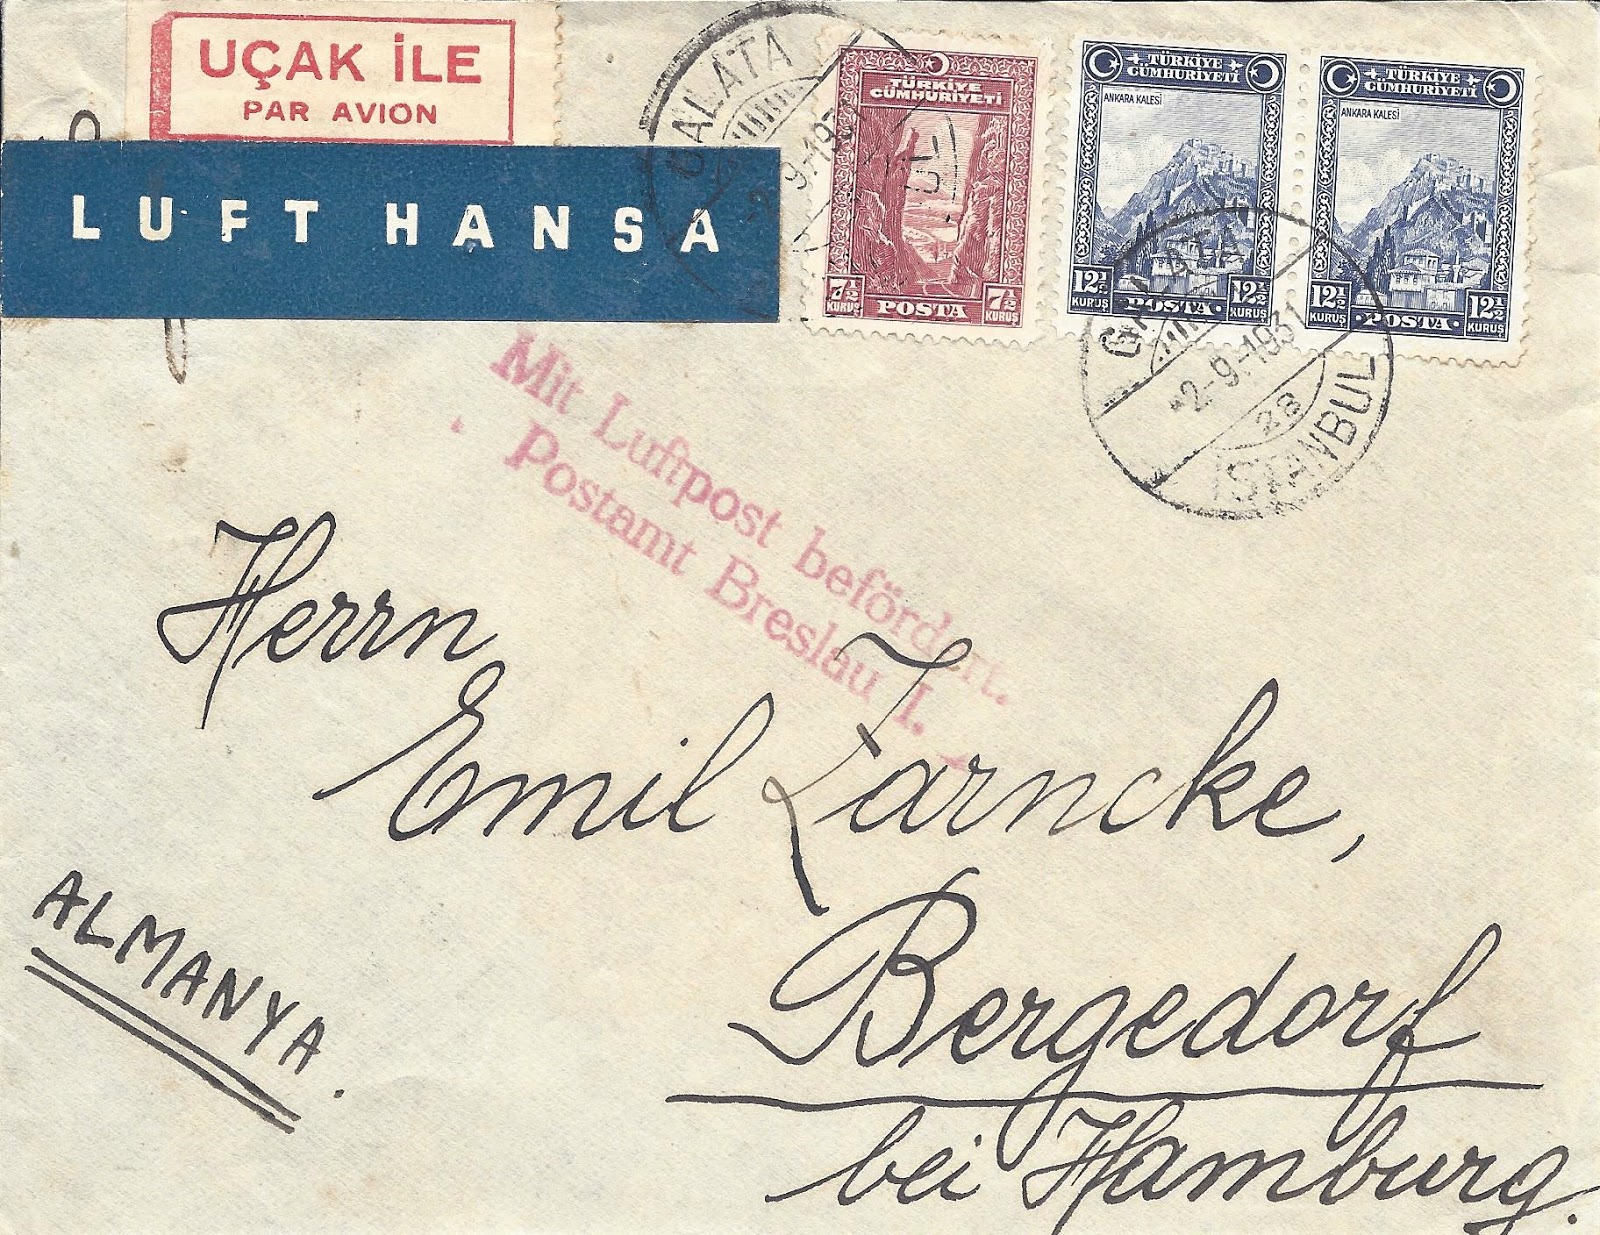 UÇAK İLE
PAR AVION
LUFT HANSA
GALATA
2-9-1931
TÜRKİYE
CÜMHURİYETİ
7½ KURUŞ POSTA 7½ KURUŞ
TÜRKİYE
CÜMHURİYETİ
ANKARA KALESİ
12½ KURUŞ POSTA 12½ KURUŞ
TÜRKİYE
CÜMHURİYETİ
ANKARA KALESİ
12½ KURUŞ POSTA 12½ KURUŞ
GALATA
2-9-1931
28
İSTANBUL
Mit Luftpost befördert.
Postamt Breslau I.
Herrn
Emil Zarncke,
ALMANYA.
Bergedorf
bei Hamburg.